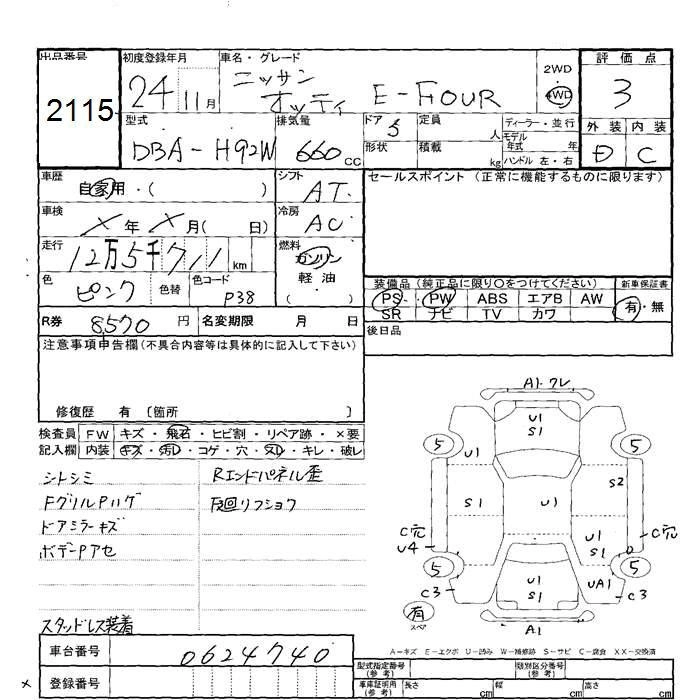 出品番号
2115
初度登録年月
24 11月
車名・グレード
ニッサン
オッティ E-FOUR
2WD
4WD
評価点
3
型式
DBA-H92W
排気量
660 CC
ドア 5
定員
人
ディーラー・並行
モデル年式 年
形状
積載
kg
ハンドル 左・右
外装 内装
D C
車歴
自家用・( )
シフト
AT
セールスポイント (正常に機能するものに限ります)
車検
X年X月( 日)
冷房
AC
走行
12万5千711km
燃料
ガソリン
軽油
( )
色
ピンク
色替
色コード
P38
装備品 (純正品に限り○をつけてください)
新車保証書
PS PW ABS エアB AW
SR ナビ TV カワ
有・無
R券 8,570 円
名変期限 月 日
後日品
注意事項申告欄(不具合内容等は具体的に記入して下さい)
修復歴 有 〔箇所 〕
検査員 FW キズ・飛石・ヒビ割・リペア跡・×要
記入欄 内装 キズ・汚レ・コゲ・穴・スレ・キレ・破レ
シトシミ
Rエンドパネル歪
FグリルPハゲ
下廻リフショウ
ドアミラーキズ
ボデーPアセ
スタッドレス装着
A1・ワレ
U1
S1
5
5
U1
S2
S1
U1
C穴
U4
U1
S1
C穴
5
5
U1
S1
UA1
C3
C3
有
スペア
A1
A-キズ E-エクボ U-凹み W-補修跡 S-サビ C-腐食 XX-交換済
車台番号
0624740
登録番号
X
型式指定番号
(参考)
類別区分番号
(参考)
車庫証明用
(参考)
長さ cm
幅 cm
高さ cm